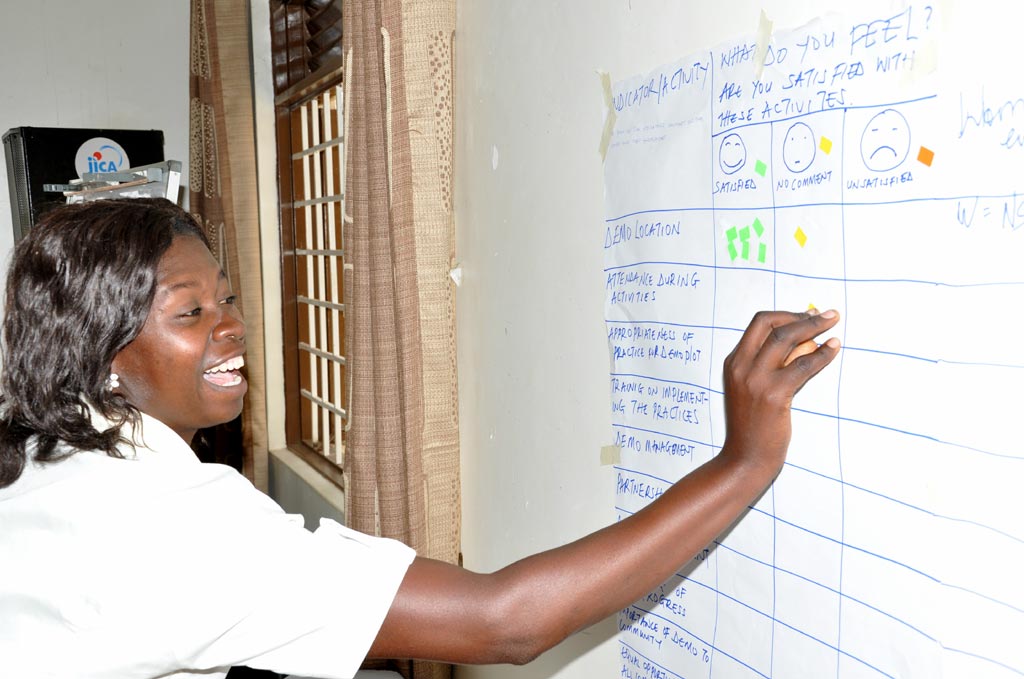 jICA
INDICATOR/ACTIVITY
WHAT DO YOU FEEL?
ARE YOU SATISFIED WITH
THESE ACTIVITIES.
SATISFIED
NO COMMENT
UNSATISFIED
W = NO
DEMO LOCATION
ATTENDANCE DURING
ACTIVITIES
APPROPRIATENESS OF
PRACTICE FOR DEMO PLOT
TRAINIG ON IMPLEMENT-
ING THE PRACTICES
DEMO MANAGEMENT
PARTNERSH
OF
IMPORTANCE OF DEMO TO
COMMUNITY